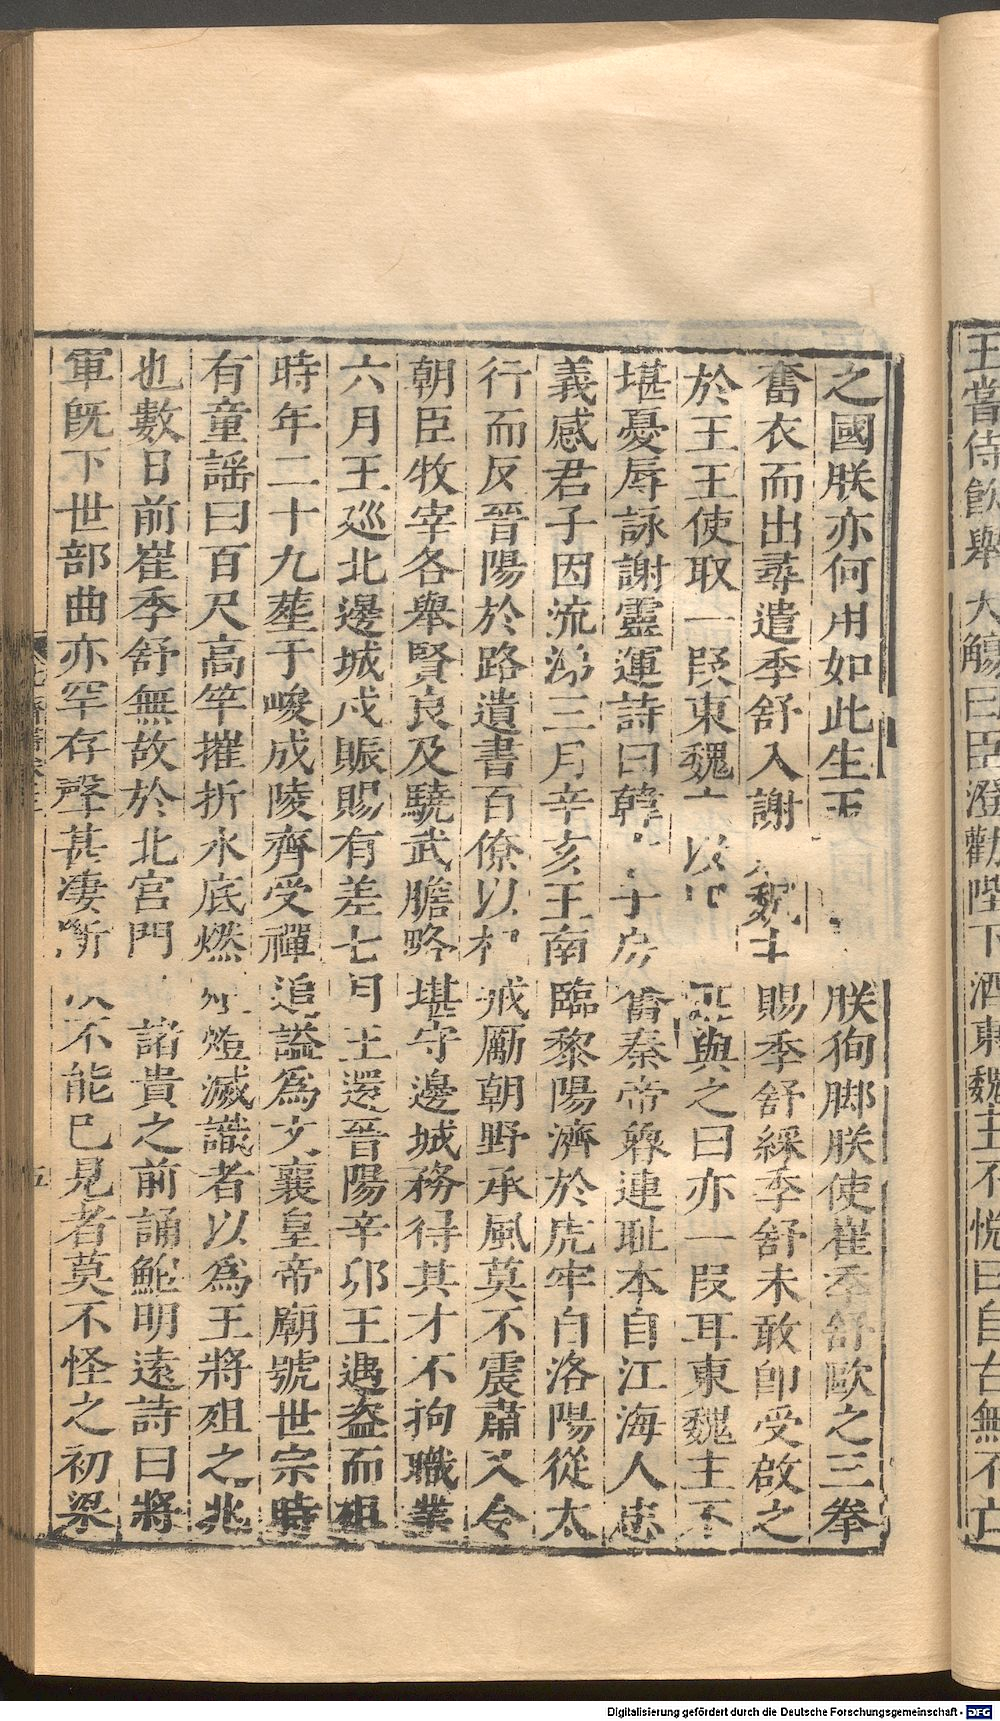 王嘗侍飲舉大觴曰臣澄勸陛下酒東魏主不悅曰自古無不亡
之國朕亦何用如此生王 朕狗脚朕使崔季舒毆之三拳
奮衣而出尋遣季舒入謝 魏主賜季舒綵季舒未敢即受啟之
於王王使取一段東魏 以 與之曰亦一段耳東魏主不
堪憂辱詠謝靈運詩曰韓 子房奮秦帝魯連耻本自江海人忠
義感君子因流涕三月辛亥王南臨黎陽濟於虎牢自洛陽從太
行而反晉陽於路遺書百僚以相戒厲朝野承風莫不震肅又令
朝臣牧宰各舉賢良及驍武膽略堪守邊城務得其才不拘職業
六月王巡北邊城戍賑賜有差七月王還晉陽辛卯王遇盜而殂
時年二十九塟于峻成陵齊受禪追謚爲文襄皇帝廟號世宗時
有童謠曰百尺高竿摧折水底燃 燈滅識者以爲王將殂之兆
也數日前崔季舒無故於北宮門 諸貴之前誦鮑明遠詩曰將
軍旣下世部曲亦罕存聲甚凄斷 不能已見者莫不怪之初梁
五
Digitalisierung gefördert durch die Deutsche Forschungsgemeinschaft - DFG